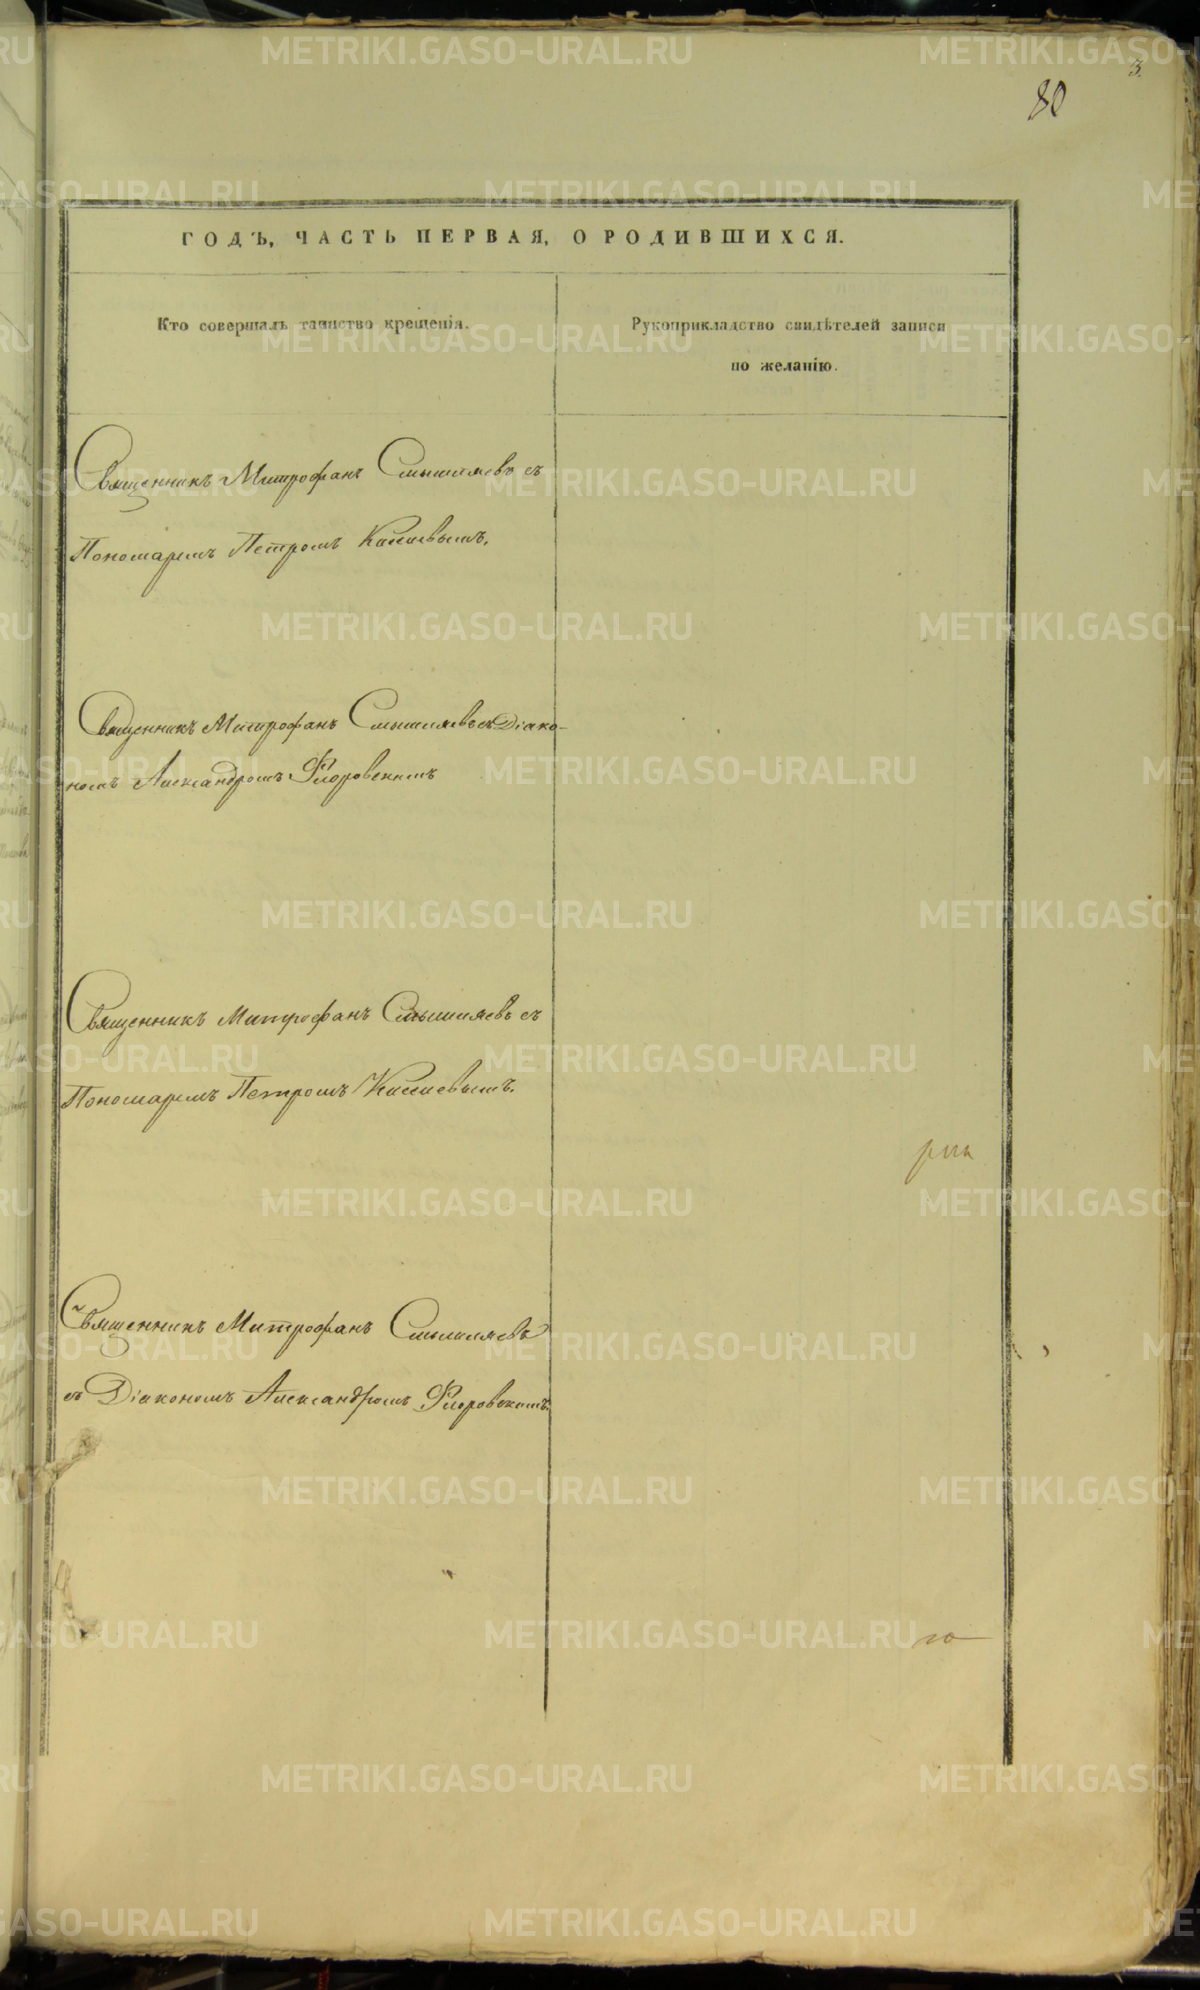 3.
80
ГОДЪ, ЧАСТЬ ПЕРВАЯ, О РОДИВШИХСЯ.
Кто совершалъ таинство крещенія.
Рукоприкладство свидѣтелей записи
по желанію.
Священникъ Митрофанъ Смышляевъ съ
Пономаремъ Петромъ
Священникъ Митрофанъ Смышляевъ съ Діако-
номъ Александромъ Флоровскимъ
Священникъ Митрофанъ Смышляевъ съ
Пономаремъ Петромъ
Священникъ Митрофанъ Смышляевъ
съ Діакономъ Александромъ Флоровскимъ.
METRIKI.GASO-URAL.RU